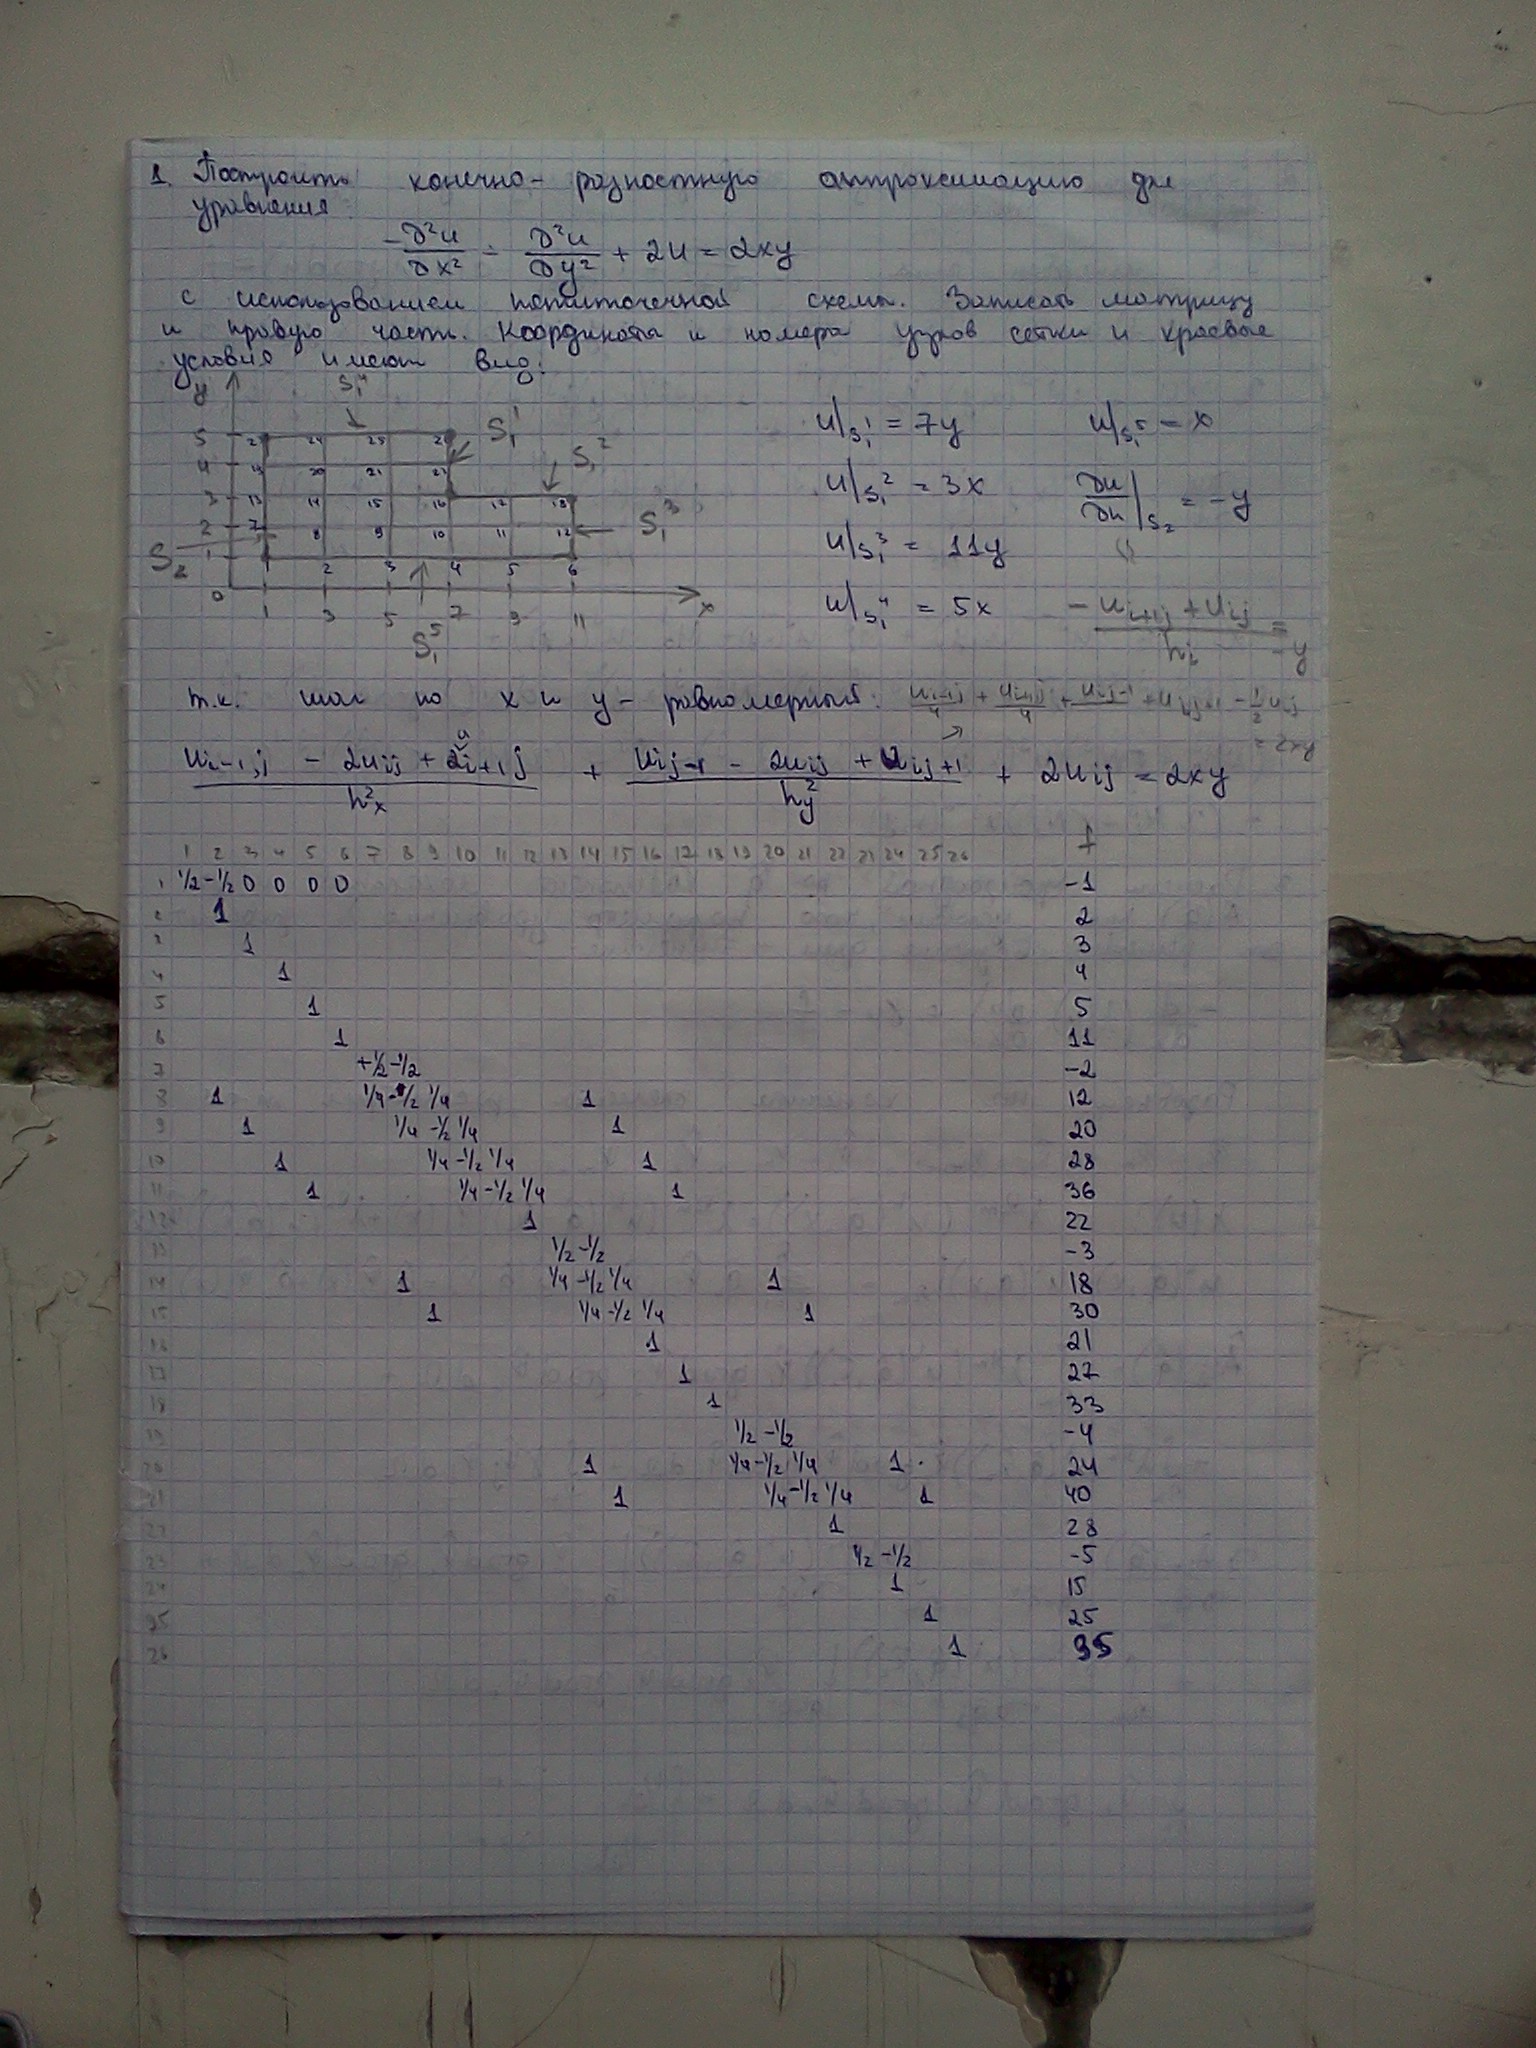 1. Построить конечно-разностную аппроксимацию для
уравнения
-∂²u/∂x² - ∂²u/∂y² + 2u = 2xy
с использованием пятиточечной схемы. Записать матрицу
и правую часть. Координаты и номера узлов сетки и краевые
условия имеют вид:
y S₁⁴
5 24 25 S₁¹
4 19 20 21 22 S₁²
3 13 14 15 16 17 18
2 7 8 9 10 11 12 S₁³
S₂ 1 2 3 4 5 6
0 1 3 5 7 9 11 x
S₁⁵
u|S₁¹ = 7y u|S₁⁵ = x
u|S₁² = 3x ∂u/∂n|S₂ = -y
u|S₁³ = 11y ⇓
u|S₁⁴ = 5x (-uᵢ₊₁ⱼ + uᵢⱼ)/hᵢ = -y
т.к. шаг по x и y - равномерный: uᵢ₋₁ⱼ/4 + uᵢ₊₁ⱼ/4 + uᵢⱼ₋₁ + uᵢⱼ₊₁ - 1/2 uᵢⱼ = 2xy
(uᵢ₋₁,ⱼ - 2uᵢⱼ + uᵢ₊₁ⱼ)/h²ₓ + (uᵢⱼ₋₁ - 2uᵢⱼ + uᵢⱼ₊₁)/h²ᵧ + 2uᵢⱼ = 2xy
1 2 3 4 5 6 7 8 9 10 11 12 13 14 15 16 17 18 19 20 21 22 23 24 25 26 f
1 1/2 -1/2 0 0 0 0 -1
2 1 2
3 1 3
4 1 4
5 1 5
6 1 11
7 +1/2 -1/2 -2
8 1 1/4 -1/2 1/4 1 12
9 1 1/4 -1/2 1/4 1 20
10 1 1/4 -1/2 1/4 1 28
11 1 1/4 -1/2 1/4 1 36
12 1 22
13 1/2 -1/2 -3
14 1 1/4 -1/2 1/4 1 18
15 1 1/4 -1/2 1/4 1 30
16 1 21
17 1 27
18 1 33
19 1/2 -1/2 -4
20 1 1/4 -1/2 1/4 1 24
21 1 1/4 -1/2 1/4 1 40
22 1 28
23 1/2 -1/2 -5
24 1 15
25 1 25
26 1 35